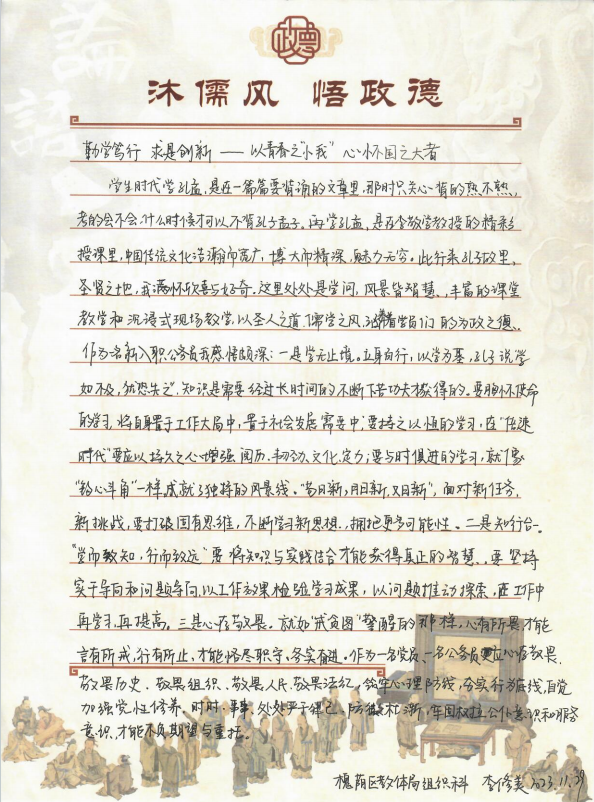 論語
政德
沐儒风 悟政德
勤学笃行 求是创新 —— 以青春之“小我” 心怀国之大者
学生时代学孔孟，是在一篇篇要背诵的文章里，那时只关心背的熟不熟，
考的会不会，什么时候才可以不背孔子孟子。再学孔孟，是在李教学教授的精彩
授课里，中国传统文化浩瀚而宽广，博大而精深，魅力无穷。此行来孔子故里，
圣贤之地，我满怀欣喜与好奇。这里处处是学问，风景皆智慧、丰富的课堂
教学和沉浸式现场教学，以圣人之道、儒学之风，学员们的为政之德。
作为名新入职公务员我感悟颇深：一是学无止境。立身百行，以学为基，孔子说“学
如不及，犹恐失之”，知识是需要经过长时间的不断下苦功夫才能获得的。要胸怀使命
的学习，将自身置于工作大局中，置于社会发展需要中；要持之以恒的学习，在“倍速
时代”要应以持久之心增强阅历、韧劲、文化、定力；要与时俱进的学习，就像
“钩心斗角”一样成就了独特的风景线。“苟日新，日日新，又日新”，面对新任务，
新挑战，要打破固有思维，不断学习新思想，拥抱更多可能性。二是知行合一。
“学而致知，行而致远”要将知识与实践结合才能获得真正的智慧、要坚持
实干导向和问题导向，以工作效果检验学习成果，以问题推动探索，在工作中
再学习，再提高。三是心存敬畏。就如“戒贪图”警醒的那样，心有所畏才能
言有所戒，行有所止，才能恪尽职守，务实奋进。作为一名党员、一名公务员更应心存敬畏，
敬畏历史、敬畏组织、敬畏人民、敬畏法纪，筑牢心理防线，夯实行为底线，自觉
加强党性修养。时时、事事、处处严于律己，防微杜渐，牢固树立公仆意识和服务
意识，才能不负期望与重托。
槐荫区教体局组织科 李修美 2023.11.29